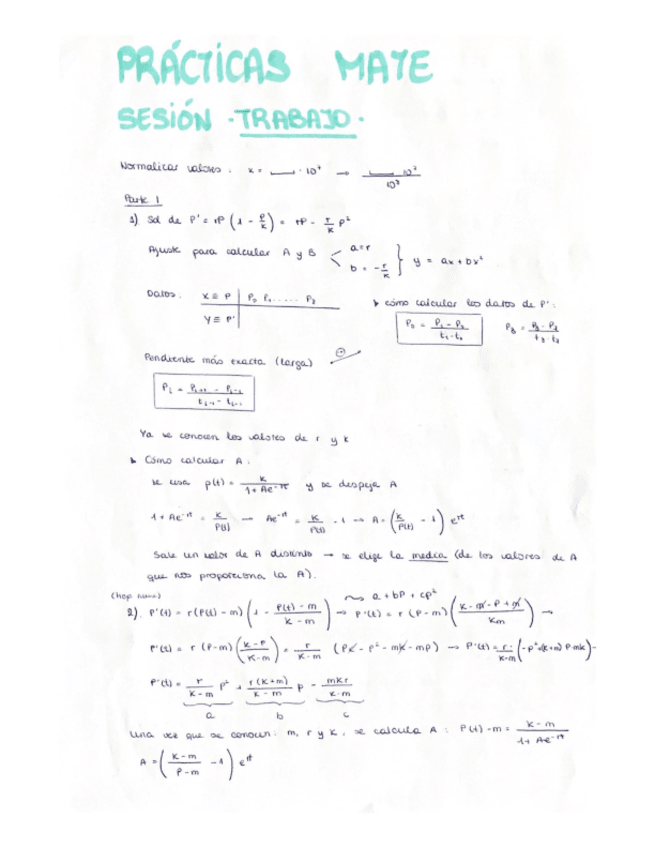 PRÁCTICAS MATE
SESIÓN · TRABAJO ·
Normalizar valores : x =
Parte 1
1) Sol de P' = rP (1 - P/K) = rP - r/K P²
Ajuste para calcular A y B { a=r b = -r/K } y = ax + bx²
Datos: X ≡ P | P₀ P₁ ......
Y ≡ P' |
▸ cómo calcular los datos de P':
Pendiente más exacta (larga)
Ya se conocen los valores de r y k
▸ Cómo calcular A:
se usa p(t) = K/(1+Ae^-rt) y se despeja A
1 + Ae^-rt = K/P(t) — Ae^-rt = K/P(t) - 1 → A = (K/P(t) - 1) e^rt
Sale un valor de A distinto → se elige la media (de los valores de A
que nos proporciona la A).
a + bP + cP²
2). P'(t) = r(P(t) - m) (1 - (P(t) - m)/(K - m)) → P'(t) = r (P-m)
P'(t) = r (P-m) ((K-P)/(K-m)) = r/(K-m) (PK - P² - mK - mP) →
P'(t) = r/(K-m) P² + r(K+m)/(K-m) P - mKr/(K-m)
a b c
Una vez que se conocen: m, r y K, se calcula A : P(t) - m = (K-m)/(1+Ae^-rt)
A = ((K-m)/(P-m) - 1) e^rt